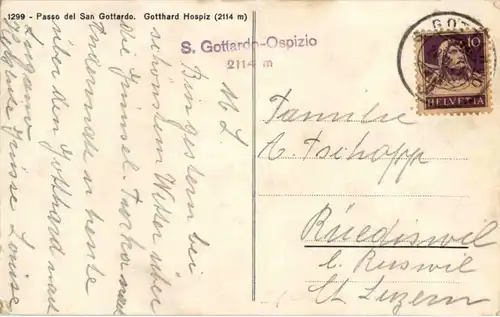 1299 - Passo del San Gottardo. Gotthard Hospiz (2114 m)
S. Gottardo-Ospizio
2114 m
GOT
10
HELVETIA
M. L.
Bin gestern bei
schönstem Wetter über
die Grimsel-Furka nach
Andermatt u heute
über den Gotthard nach
Lugano
Grüsse Louise
Familie
A Tschopp
Rüediswil
b. Ruswil
Ct. Luzern